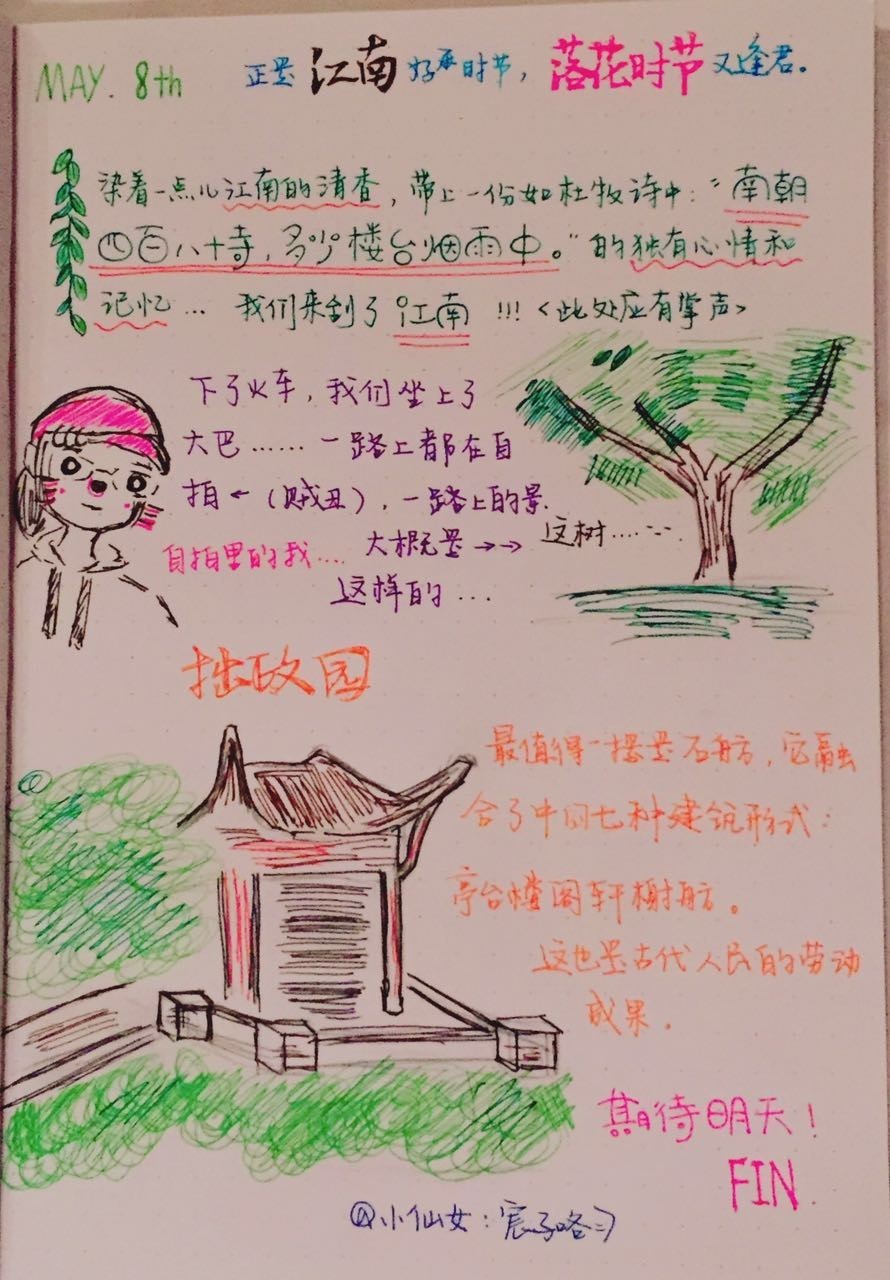 MAY. 8th 正是江南好风时节，落花时节又逢君。
染着一点儿江南的清香，带上一份如杜牧诗中："南朝
四百八十寺，多少楼台烟雨中。"的独有心情和
记忆... 我们来到了江南 !!! <此处应有掌声>
下了火车，我们坐上了
大巴……一路上都在自
拍←（贼丑），一路上的景.
自拍里的我... 大概是→→ 这树......
这样的...
拙政园
最值得一提是石舫，它融
合了中国七种建筑形式：
亭台楼阁轩榭舫。
这也是古代人民的劳动
成果.
期待明天！
FIN
@小仙女：宸子咯